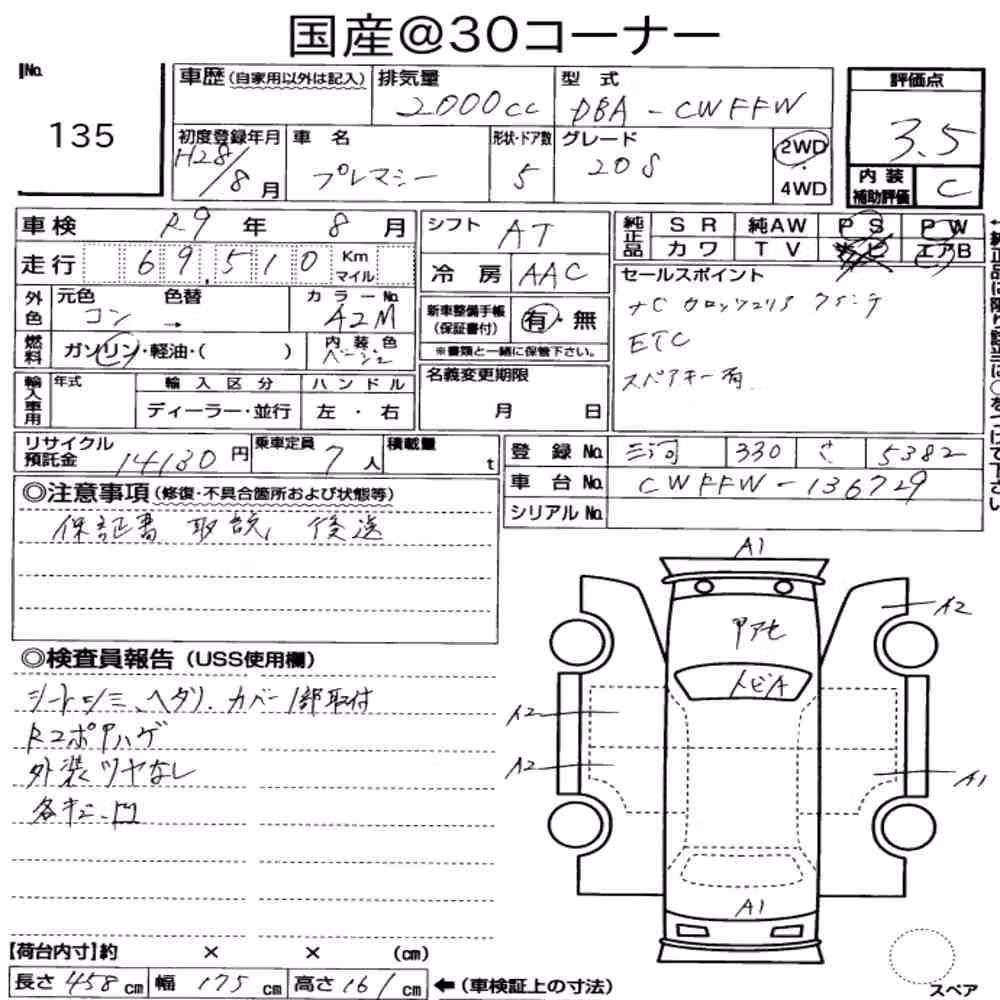 国産@30コーナー
No.
135
車歴（自家用以外は記入）
排気量
2000cc
型式
DBA-CWFFW
評価点
3.5
内装補助評価
C
初度登録年月
H28/8月
車名
プレマシー
形状・ドア数
5
グレード
20S
2WD
・
4WD
車検 R9年 8月
走行 69,510 Km マイル
外色
元色 コン
色替 →
カラーNo. A2M
燃料
ガソリン・軽油・( )
内装色
ベージュ
輸入車用
年式
輸入区分
ディーラー・並行
ハンドル
左・右
シフト AT
冷房 AAC
新車整備手帳（保証書付） 有・無
※書類と一緒に保管下さい。
名義変更期限
月 日
純正品
SR 純AW PS PW
カワ TV ナビ エアB
セールスポイント
ETC
スペアキー有
←純正品に限り該当に○をつけて下さい
リサイクル預託金 14130円
乗車定員 7人
積載量 t
登録No. 三河 330 さ 5382
車台No. CWFFW-136729
シリアルNo.
◎注意事項（修復・不具合箇所および状態等）
保証書 取説、後送
◎検査員報告（USS使用欄）
シートシミ、ヘタリ、カバー1部取付
外装ツヤなし
各キズ、凹
A1
A2
トビA
A2
A2
A1
A1
【荷台内寸】約 × × (cm)
長さ 458cm 幅 175cm 高さ 161cm ←（車検証上の寸法）
スペア